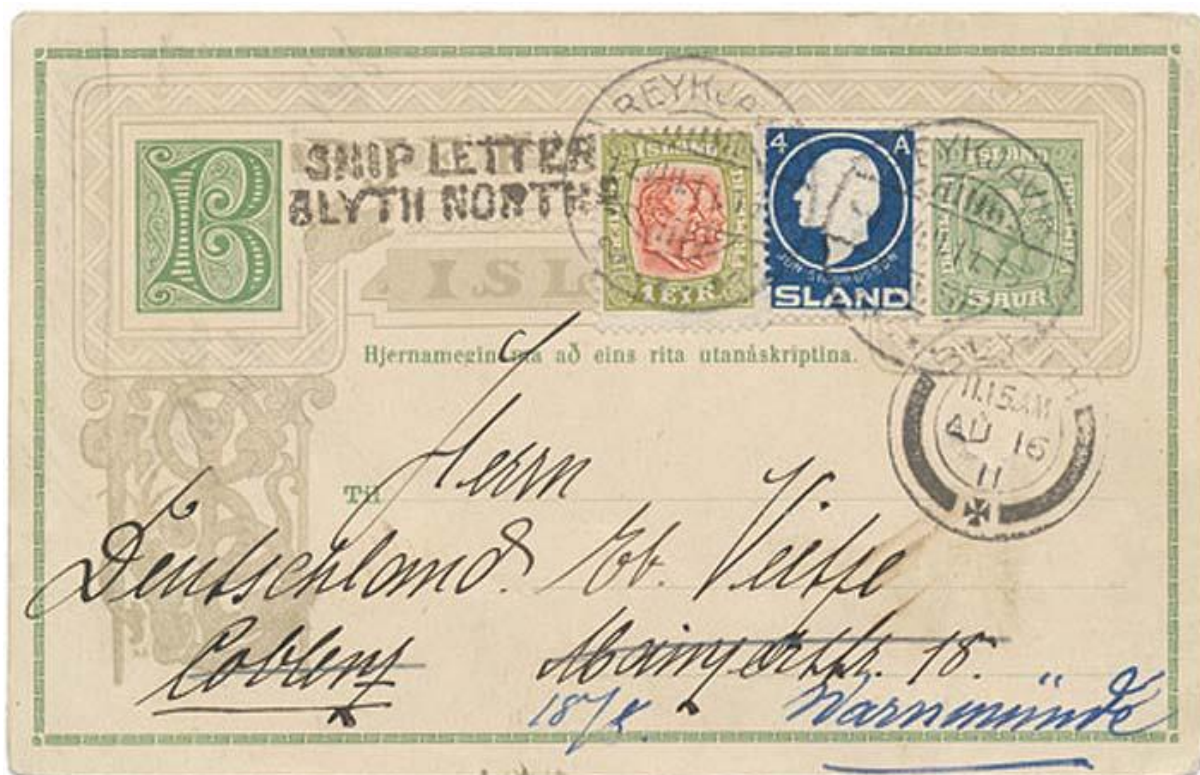 B
SHIP LETTER
BLYTH NORTH
REYKJA
ÍSLAND
1 EYR
4 A
JÓN SIGURÐSSON
ÍSLAND
REYKJAVIK
ÍSLAND
5 AUR
ISL
Hjernamegin má að eins rita utanáskriptina.
BLYTH
11.15AM
AU 16
11
Til Herrn
Deutschland.
Coblenz Mainzerstr. 18.
18/8. Warnmünde